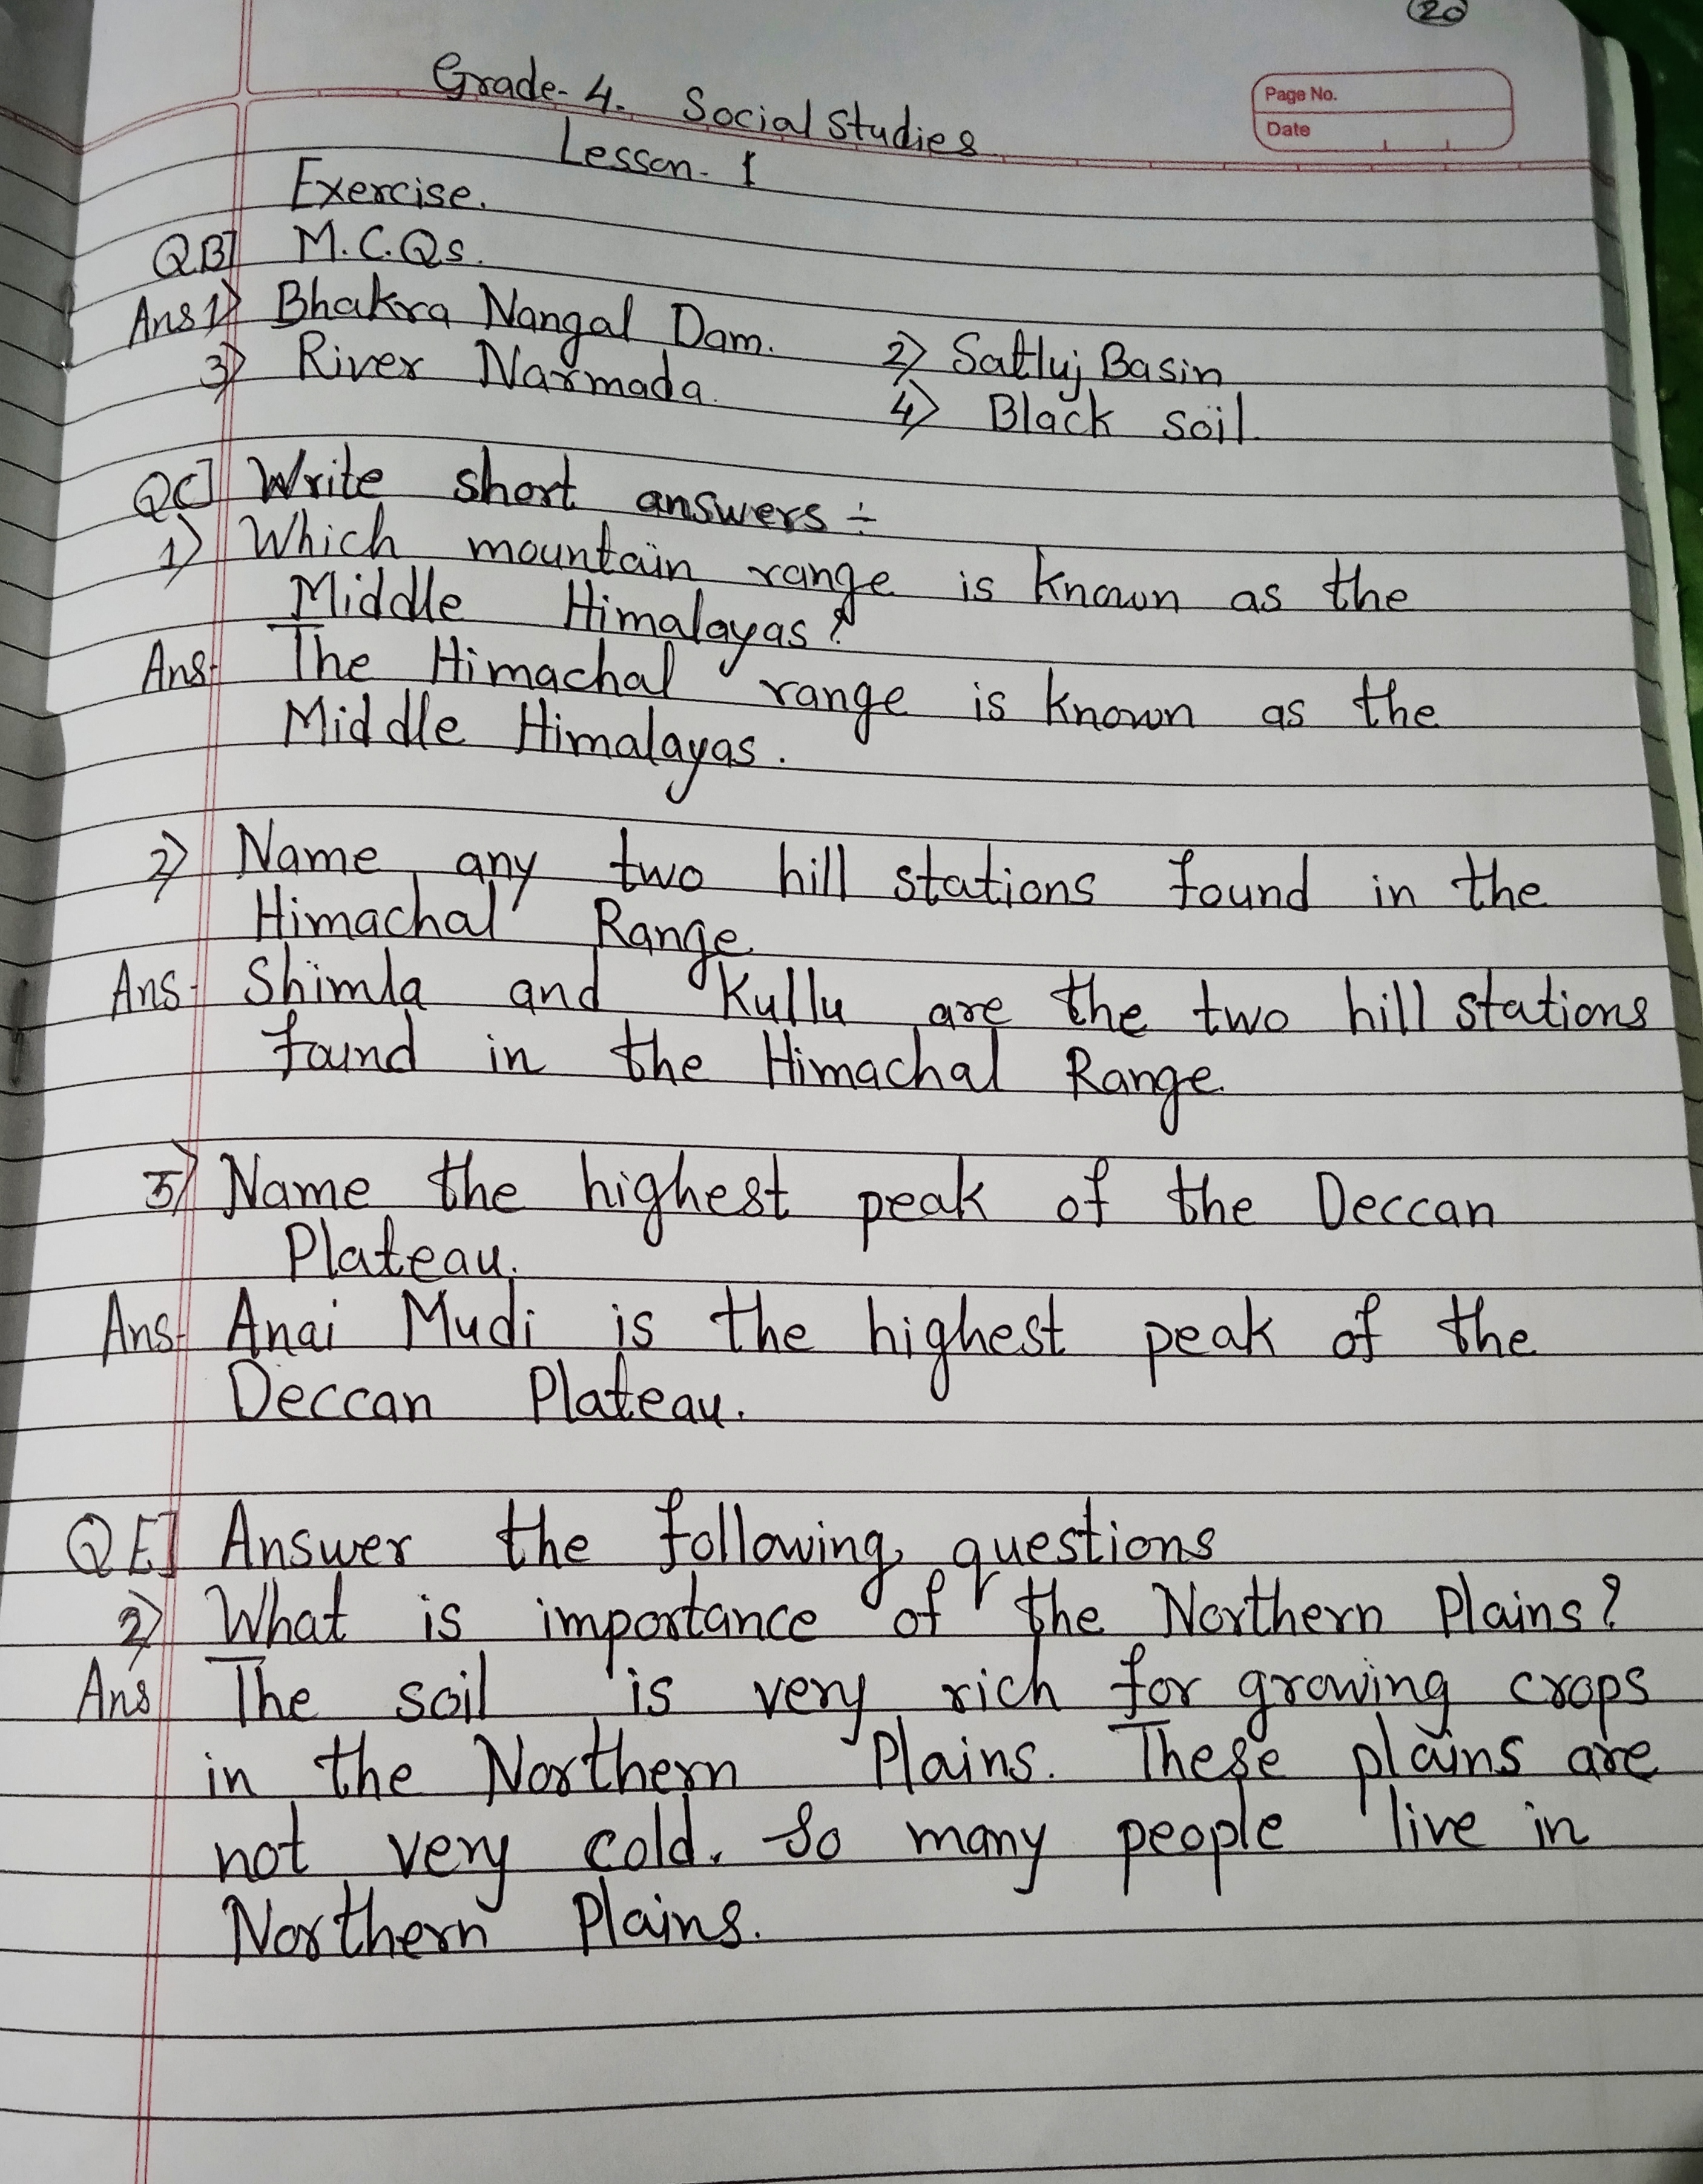 20
Grade-4. Social Studies
Page No.
Date
Lesson-1
Exercise.
QB] M.C.Qs.
Ans 1) Bhakra Nangal Dam. 2) Satluj Basin
3) River Narmada. 4) Black soil.
QC] Write short answers ÷
1) Which mountain range is known as the
Middle Himalayas?
Ans- The Himachal range is known as the
Middle Himalayas.
2) Name any two hill stations found in the
Himachal Range.
Ans- Shimla and Kullu are the two hill stations
found in the Himachal Range.
3) Name the highest peak of the Deccan
Plateau.
Ans- Anai Mudi is the highest peak of the
Deccan Plateau.
QE] Answer the following questions
2) What is importance of the Northern Plains?
Ans The soil is very rich for growing crops
in the Northern Plains. These plains are
not very cold. So many people live in
Northern Plains.